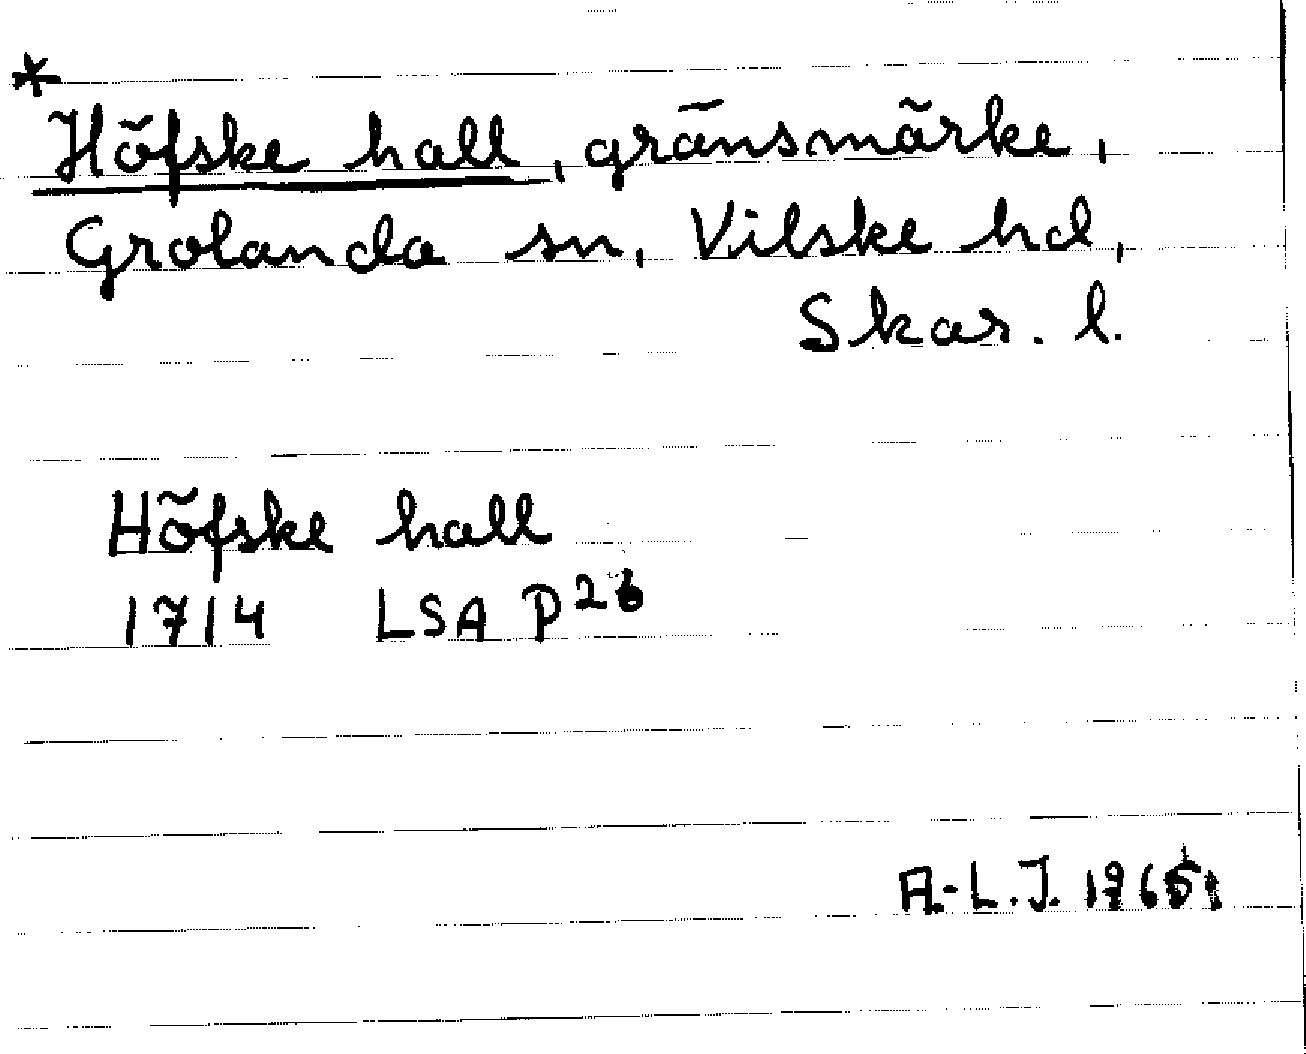 *
Höfske hall, gränsmärke,
Grolanda sn, Vilske hd,
Skar. l.
Höfske hall
1714 LSA P 26
A.-L.J. 1965